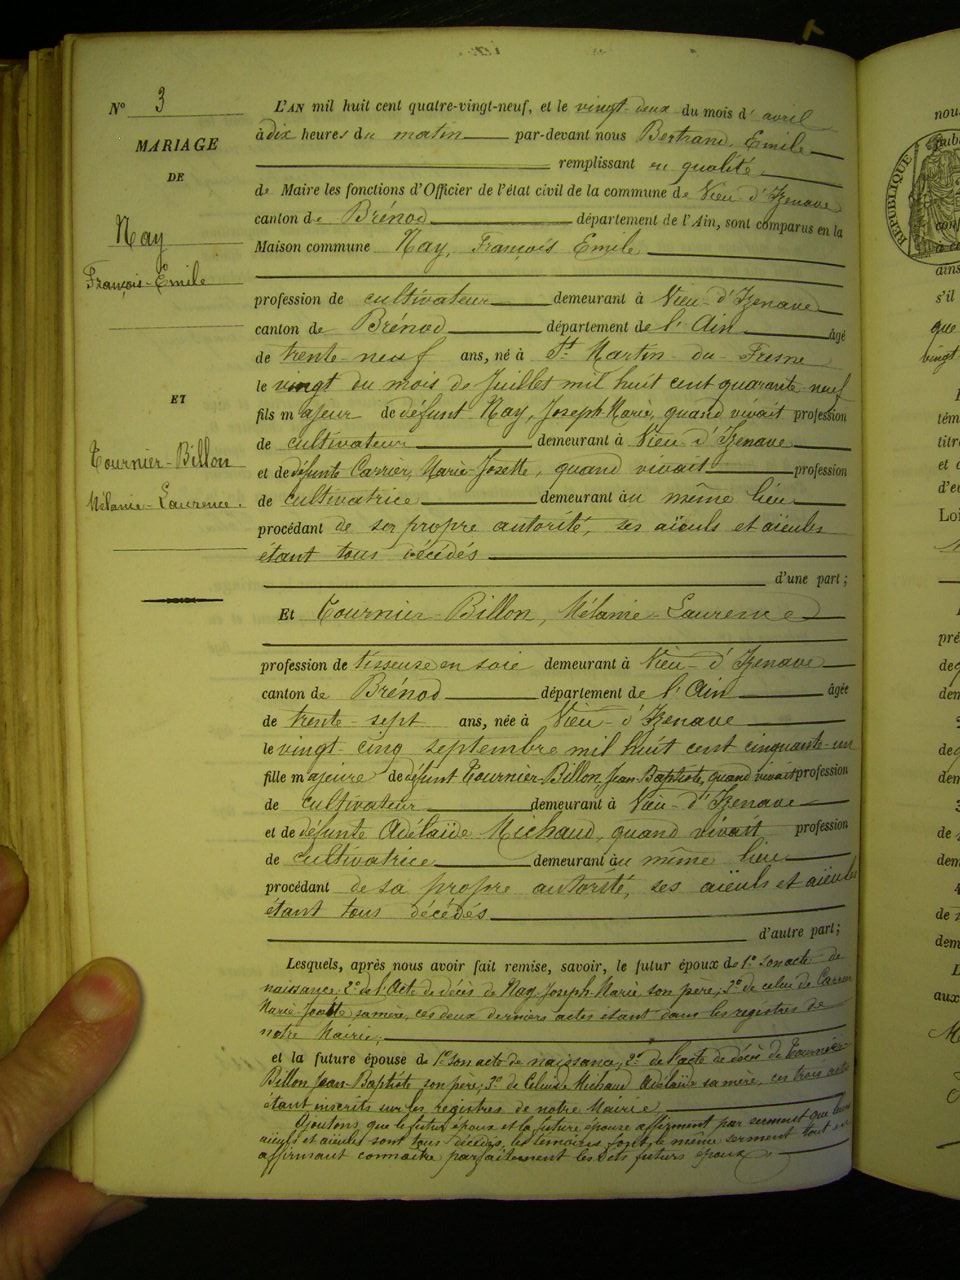 N° 3
MARIAGE
DE
Nay
François-Emile
ET
Tournier-Billon
Mélanie-Laurence.
L'AN mil huit cent quatre-vingt-neuf, et le vingt-deux du mois d'avril
à dix heures du matin par-devant nous Bertrand, Emile
remplissant en qualité
de Maire les fonctions d'Officier de l'état civil de la commune de Vieu-d'Izenave
canton de Brénod département de l'Ain, sont comparus en la
Maison commune Nay, François Emile
profession de cultivateur demeurant à Vieu-d'Izenave
canton de Brénod département de l'Ain âgé
de trente-neuf ans, né à St Martin-du-Fresne
le vingt du mois de Juillet mil huit cent quarante-neuf
fils majeur de défunt Nay, Joseph-Marie, quand vivait profession
de cultivateur demeurant à Vieu-d'Izenave
et de défunte Carrier, Marie-Josette, quand vivait profession
de cultivatrice demeurant au même lieu
procédant de sa propre autorité, ses aïeuls et aïeules
étant tous décédés
d'une part;
Et Tournier-Billon, Mélanie-Laurence
profession de tisseuse en soie demeurant à Vieu-d'Izenave
canton de Brénod département de l'Ain âgée
de trente-sept ans, née à Vieu-d'Izenave
le vingt-cinq septembre mil huit cent cinquante-un
fille majeure de défunt Tournier-Billon, Jean-Baptiste, quand vivait profession
de cultivateur demeurant à Vieu-d'Izenave
et de défunte Adélaïde Michaud, quand vivait profession
de cultivatrice demeurant au même lieu
procédant de sa propre autorité, ses aïeuls et aïeules
étant tous décédés
d'autre part;
Lesquels, après nous avoir fait remise, savoir, le futur époux de 1° son acte de
naissance, 2° de l'Acte de décès de Nay, Joseph-Marie son père, 3° de celui de Carrier
Marie-Josette sa mère, ces deux derniers actes étant dans les registres de
notre Mairie;
et la future épouse de 1° son acte de naissance, 2° de l'acte de décès de Tournier-
Billon Jean-Baptiste son père, 3° de celui de Michaud Adélaïde sa mère, ces trois actes
étant inscrits sur les registres de notre Mairie
Ajoutons que le futur époux et la future épouse affirment par serment que leurs
aïeuls et aïeules sont tous décédés, les témoins font le même serment tout en
affirmant connaître parfaitement les dits futurs époux
RÉPUBLIQUE